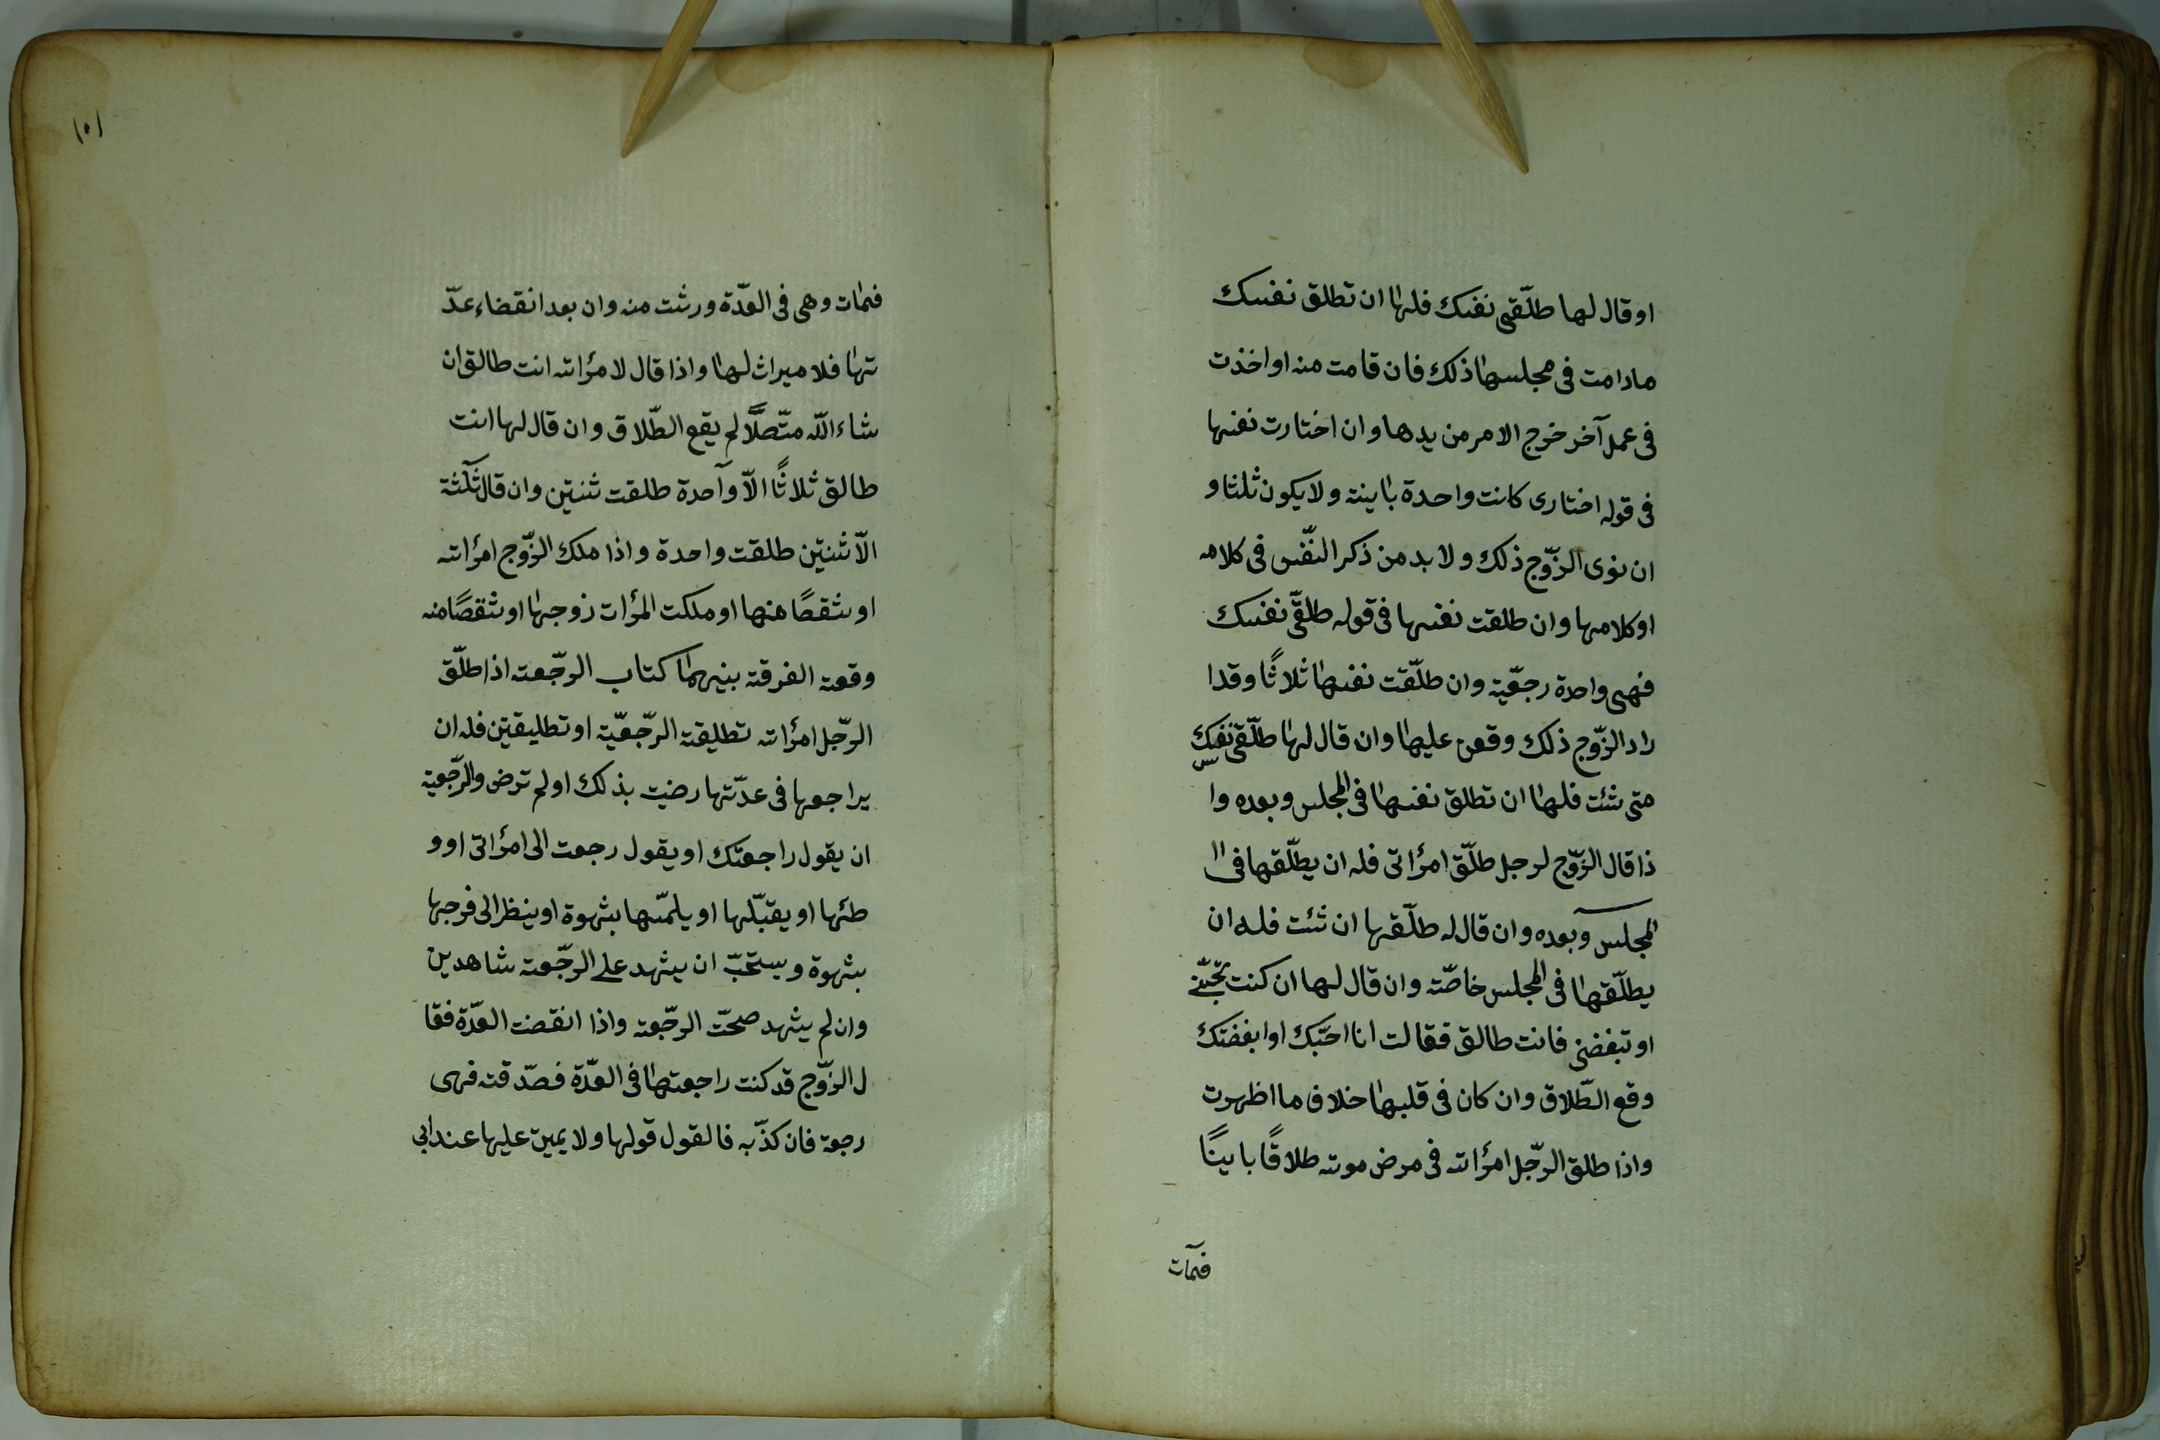 او قال لها طلّقى نفسك فلها ان تطلق نفسك
مادامت فى مجلسها ذلك فان قامت منه او اخذت
فى عمل آخر خرج الامر من يدها وان اختارت نفسها
فى قوله اختارى كانت واحدة باينة ولا يكون ثلثا و
ان نوى الزّوج ذلك ولا بد من ذكر النّفس فى كلامه
او كلامها وان طلقت نفسها فى قوله طلّقى نفسك
فهى واحدة رجعّية وان طلّقت نفسها ثلاثًا وقد ا
راد الزّوج ذلك وقعن عليها وان قال لها طلّقى نفسك
متى شئت فلها ان تطلق نفسها فى المجلس وبعده وا
ذا قال الزّوج لرجل طلّق امرٔاتى فله ان يطلّقها فى ا
لمجلس وبعده وان قال له طلّقها ان شئت فله ان
يطلّقها فى المجلس خاصّة وان قال لها ان كنت تحبّنى
او تبغضنى فانت طالق فقالت انا احبّك او ابغضتك
وقع الطّلاق وان كان فى قلبها خلاف ما اظهرت
واذا طلق الرّجل امرٔاته فى مرض موته طلاقًا باينًا
فمات
١٥١
فمات وهى فى العدّة ورثت منه وان بعد انقضاء عدّ
تها فلا ميراث لها واذا قال لامرٔاته انت طالق ان
شاء اللّه متّصلًا لم يقع الطّلاق وان قال لها انت
طالق ثلاثًا الّا واحدة طلقت ثنتين وان قال ثلثة
الّا ثنتين طلقت واحدة واذا ملك الزّوج امرٔاته
او شقصًا منها او ملكت المرٔات زوجها او شقصًا منه
وقعة الفرقة بينهما كتاب الرجّعة اذا طلّق
الرّجل امرٔاته تطليقة الرّجعيّة او تطليقتين فله ان
يراجعها فى عدّتها رضيت بذلك او لم ترض والرّجعية
ان يقول راجعتك او يقول رجعت الى امرٔاتى او و
طئها او يقبّلها او يلمسّها بشهوة او ينظر الى فرجها
بشهوة ويستحبّ ان يشهد على الرجّعة شاهدين
وان لم يشهد صحّت الرجّعة واذا انقضت العدّة فقا
ل الزّوج قد كنت راجعتها فى العدّة فصدّقته فهى
رجعة فان كذّبه فالقول قولها ولا يمين عليها عند ابى